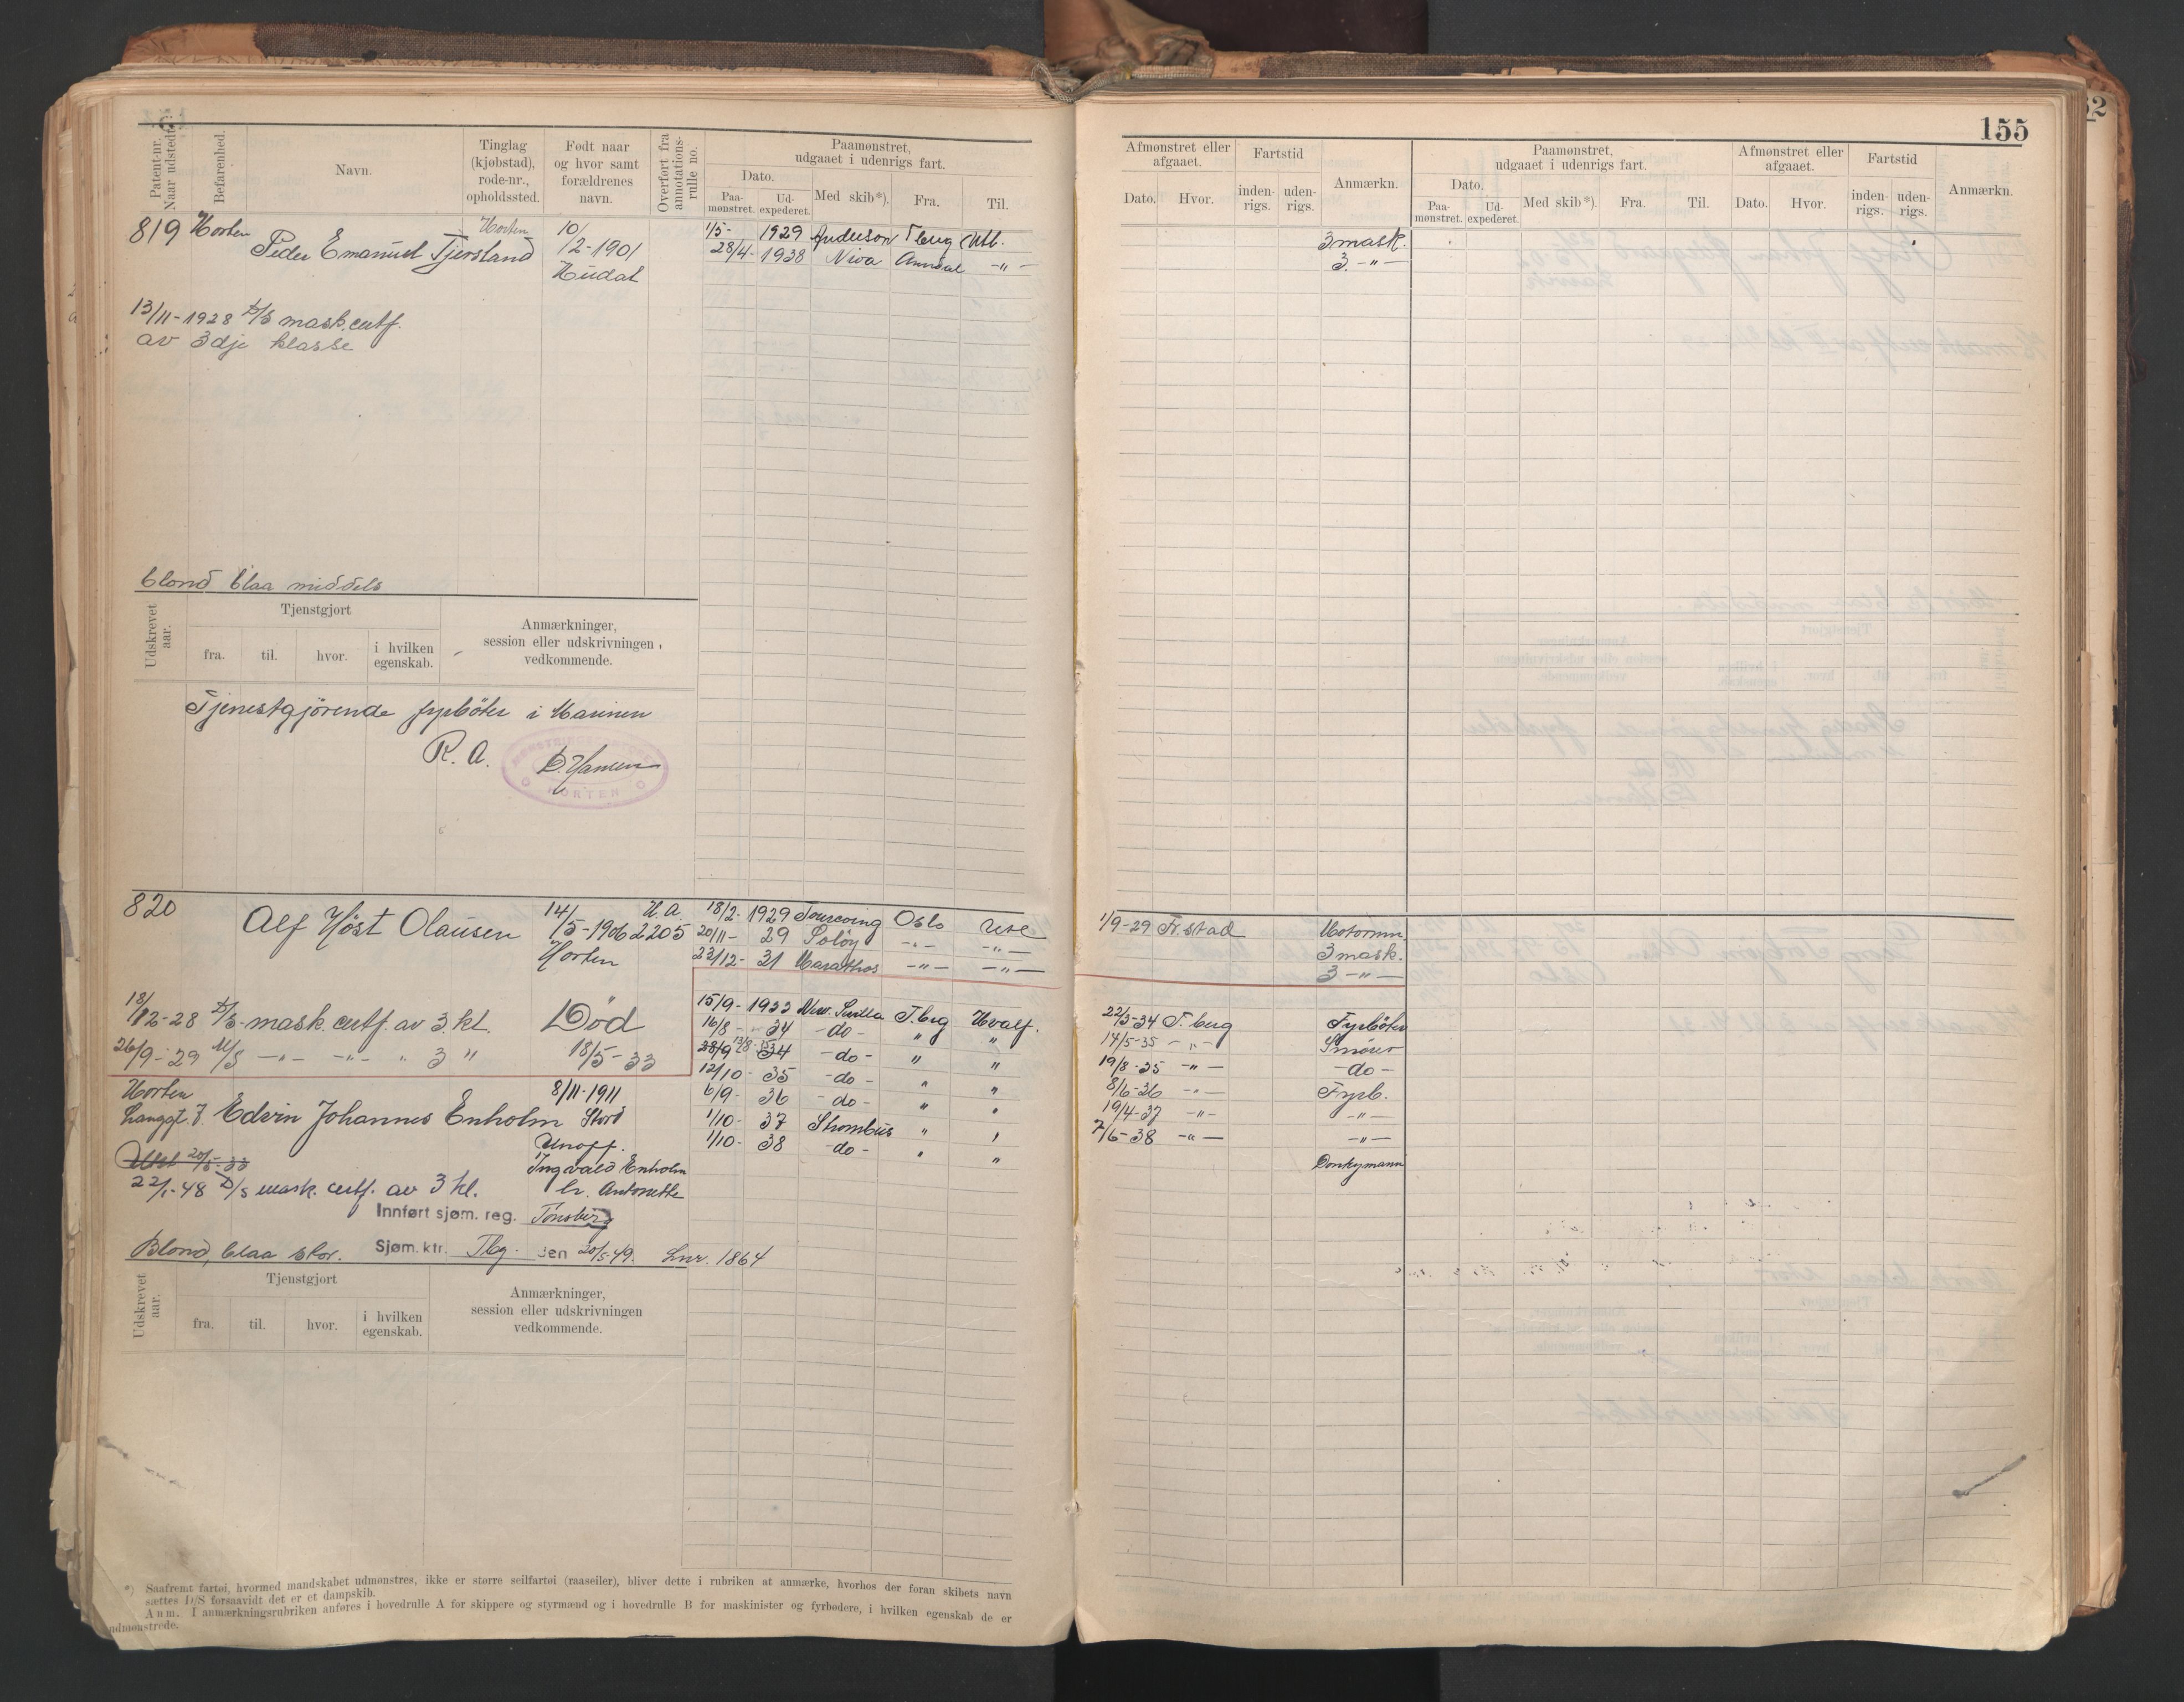 155
Patent-nr. Naar udstedt.
Befarenhed.
Navn.
Tinglag (kjøbstad), rode-nr., opholdssted.
Født naar og hvor samt forældrenes navn.
Overført fra annotations-rulle no.
Paamønstret, udgaaet i udenrigs fart.
Dato.
Paa-mønstret.
Ud-expederet.
Med skib*).
Fra.
Til.
Afmønstret eller afgaaet.
Dato.
Hvor.
Fartstid
inden-rigs.
uden-rigs.
Anmærkn.
Paamønstret, udgaaet i udenrigs fart.
Dato.
Paa-mønstret.
Ud-expederet.
Med skib*).
Fra.
Til.
Afmønstret eller afgaaet.
Dato.
Hvor.
Fartstid
inden-rigs.
uden-rigs.
Anmærkn.
819 Horten Peder Emanuel Tjersland Horten
10/12-1901
Hudal
1/5- 1929 Anderson Tberg Utl. 3 mask.
28/4- 1938 Niva Arendal -"- 3. -"-
13/11-1928 D/S mask. certf.
av 3dje klasse
blond blaa middels
Udskrevet aar.
Tjenstgjort
fra.
til.
hvor.
i hvilken egenskab.
Anmærkninger, session eller udskrivningen vedkommende.
Tjenestgjørende fyrbøter i Marinen
R. A. HORTEN
820 Alf Høst Olausen
14/5-1906
Horten
H. A. 2205
18/2- 1929 Tourcoing Oslo Utl 1/9-29 Fr.stad Motormn.
20/11- 29 Soløy -"- -"- 3 mask.
22/12- 31 Marathos -"- -"- 3 -"-
18/12-28 D/S- mask. certf. av 3. kl.
26/9-29 M/S -"- -"- " 3 "
Død
18/5-33
15/9- 1933 New. Sevilla T.brg Hvalf. 22/5-34 T.berg Fyrbøter
16/8- 34 -do- " " 14/5-35 -"- Smører
28/9 34 -do- " " 19/8-35 -"- -do-
12/10- 35 -do- " " 8/6-36 -"- Fyrb.
6/9- 36 -do- " " 19/4-37 -"- -"-
1/10- 37 Strombus " " 7/6-38 -"- -"-
1/10- 38 -do- " " Donkymann
Horten
Langgt. 7 Edvin Johannes Enholm
8/11-1911
Stord
Unoff.
Ingvald Enholm
Antonette
Tønsberg
Utst 20/5-33
22/1-48 D/S mask. certf. av 3 kl.
Innført sjøm. reg.
Sjøm. ktr. Tbg. den 20/5-49. Lnr. 1864
Blond, blaa stor.
Udskrevet aar.
Tjenstgjort
fra.
til.
hvor.
i hvilken egenskab.
Anmærkninger, session eller udskrivningen vedkommende.
*) Saafremt fartøi, hvormed mandskabet udmønstres, ikke er større seilfartøi (raaseiler), bliver dette i rubriken at anmærke, hvorhos der foran skibets navn
sættes D/S forsaavidt det er et dampskib.
Anm. I anmærkningsrubriken anføres i hovedrulle A for skippere og styrmænd og i hovedrulle B for maskinister og fyrbødere, i hvilken egenskab de er
udmønstrede.